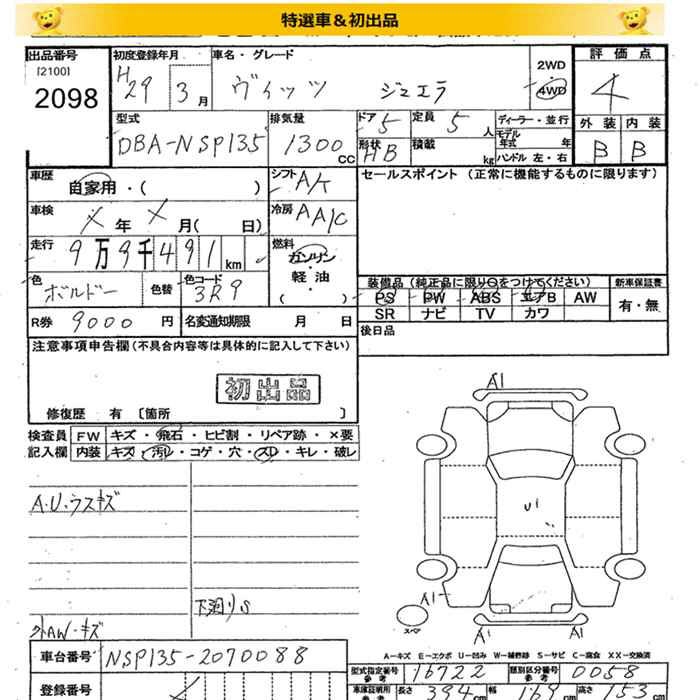 特選車&初出品
出品番号 初度登録年月 車名・グレード 2WD 評価点
[2100] 4WD
2098 H29 3月 ヴィッツ ジュエラ 4
型式 排気量 ドア 定員 ディーラー・並行 外装 内装
DBA-NSP135 1300CC 5 5人 モデル年式 年
形状 積載 ハンドル 左・右 B B
HB kg
車歴 自家用・( ) シフト A/K セールスポイント (正常に機能するものに限ります)
車検 X年 X月( 日) 冷房 AA/C
走行 9万9千491km 燃料 ガソリン・軽油・( )
色 ボルドー 色替 色コード 3R9
装備品 (純正品に限り○をつけてください) 新車保証書
PS PW ABS エアB AW 有・無
SR ナビ TV カワ
R券 9000円 名変通知期限 月 日 後日品
注意事項申告欄 (不具合内容等は具体的に記入して下さい)
初出品
修復歴 有 [箇所 ]
検査員 FW キズ・飛石・ヒビ割・リペア跡・×要
記入欄 内装 キズ・汚レ・コゲ・穴・スレ・キレ・破レ
A1
A・U・ウスキズ
U1
下廻りS
A1
スペア
外AW・キズ
A1 A1
A-キズ E-エクボ U-凹み W-補修跡 S-サビ C-腐食 XX-交換済
車台番号 NSP135-2070088
型式指定番号 参考 16722 類別区分番号 参考 0058
登録番号
車庫証明用 参考 長さ 394cm 幅 169cm 高さ 153